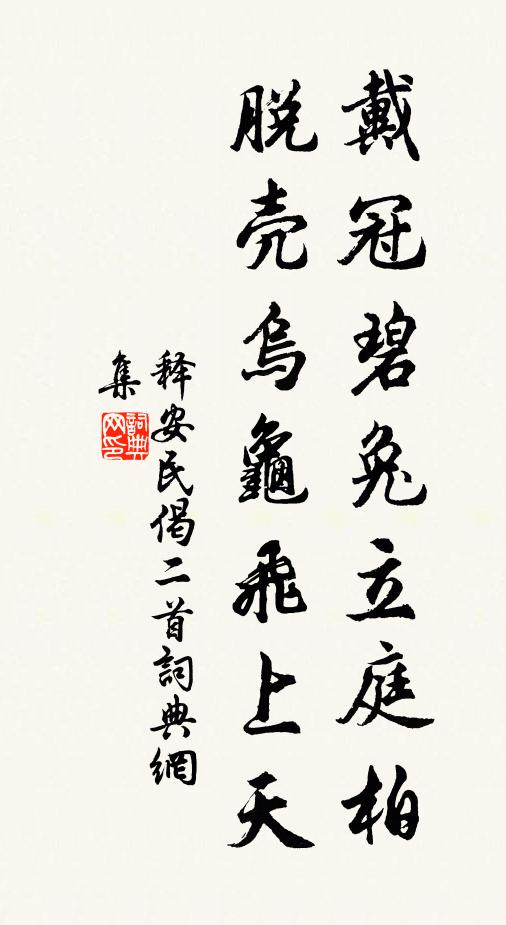 戴冠碧兔立庭柏
脱壳烏龜飛上天
释安民偈二首詞典網
集
詞典
网印